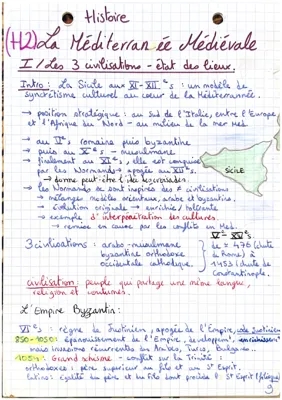 Histoire
(H2) La Méditerranée Médiévale
I / Les 3 civilisations - état des lieux.
Intro : La Sicile aux XI - XII e s : un modèle de
syncrétisme culturel au coeur de la Méditerrannée.
→ position stratégique : au Sud de l'Italie, entre l'Europe
et l'Afrique du Nord - au milieu de la mer Med.
→ au e s, romaine puis byzantine
→ puis au e s - musulmane
→ finalement au e s, elle est conquise
par les Normands → apogée au e s.
→ donne peut-être l'idée des croisades
→ les Normands se sont inspirés des ≠ civilisations
→ mélanges modèles orientaux, arabe et byzantins.
évolution originale → enrichie / tolérante
→ exemple d'interpénétration des cultures.
→ remise en cause par les conflits en Med.
SICILE
3 civilisations : arabo-musulmane
byzantine orthodoxe
occidentale catholique.
V e - XV e s
de ≠ 476 (chute
de Rome) à
1453 (chute de
Constantinople.
civilisation : peuple que partage une même langue,
religion et coutumes.
L'Empire Byzantin :
VI e s : règne de Justinien, apogée de l'Empire, code Justinien
850 - 1050 : épanouissement de l'Empire, développemt, enrichissemt
mais invasions récurrentes des Arabes, Turcs, Bulgares...
1054 : Grand schisme - conflit sur la Trinité :
orthodoxes : père supérieur au fils et au St Esprit.
Latins : égalité du père et du fils dont procède le St Esprit (filioque)